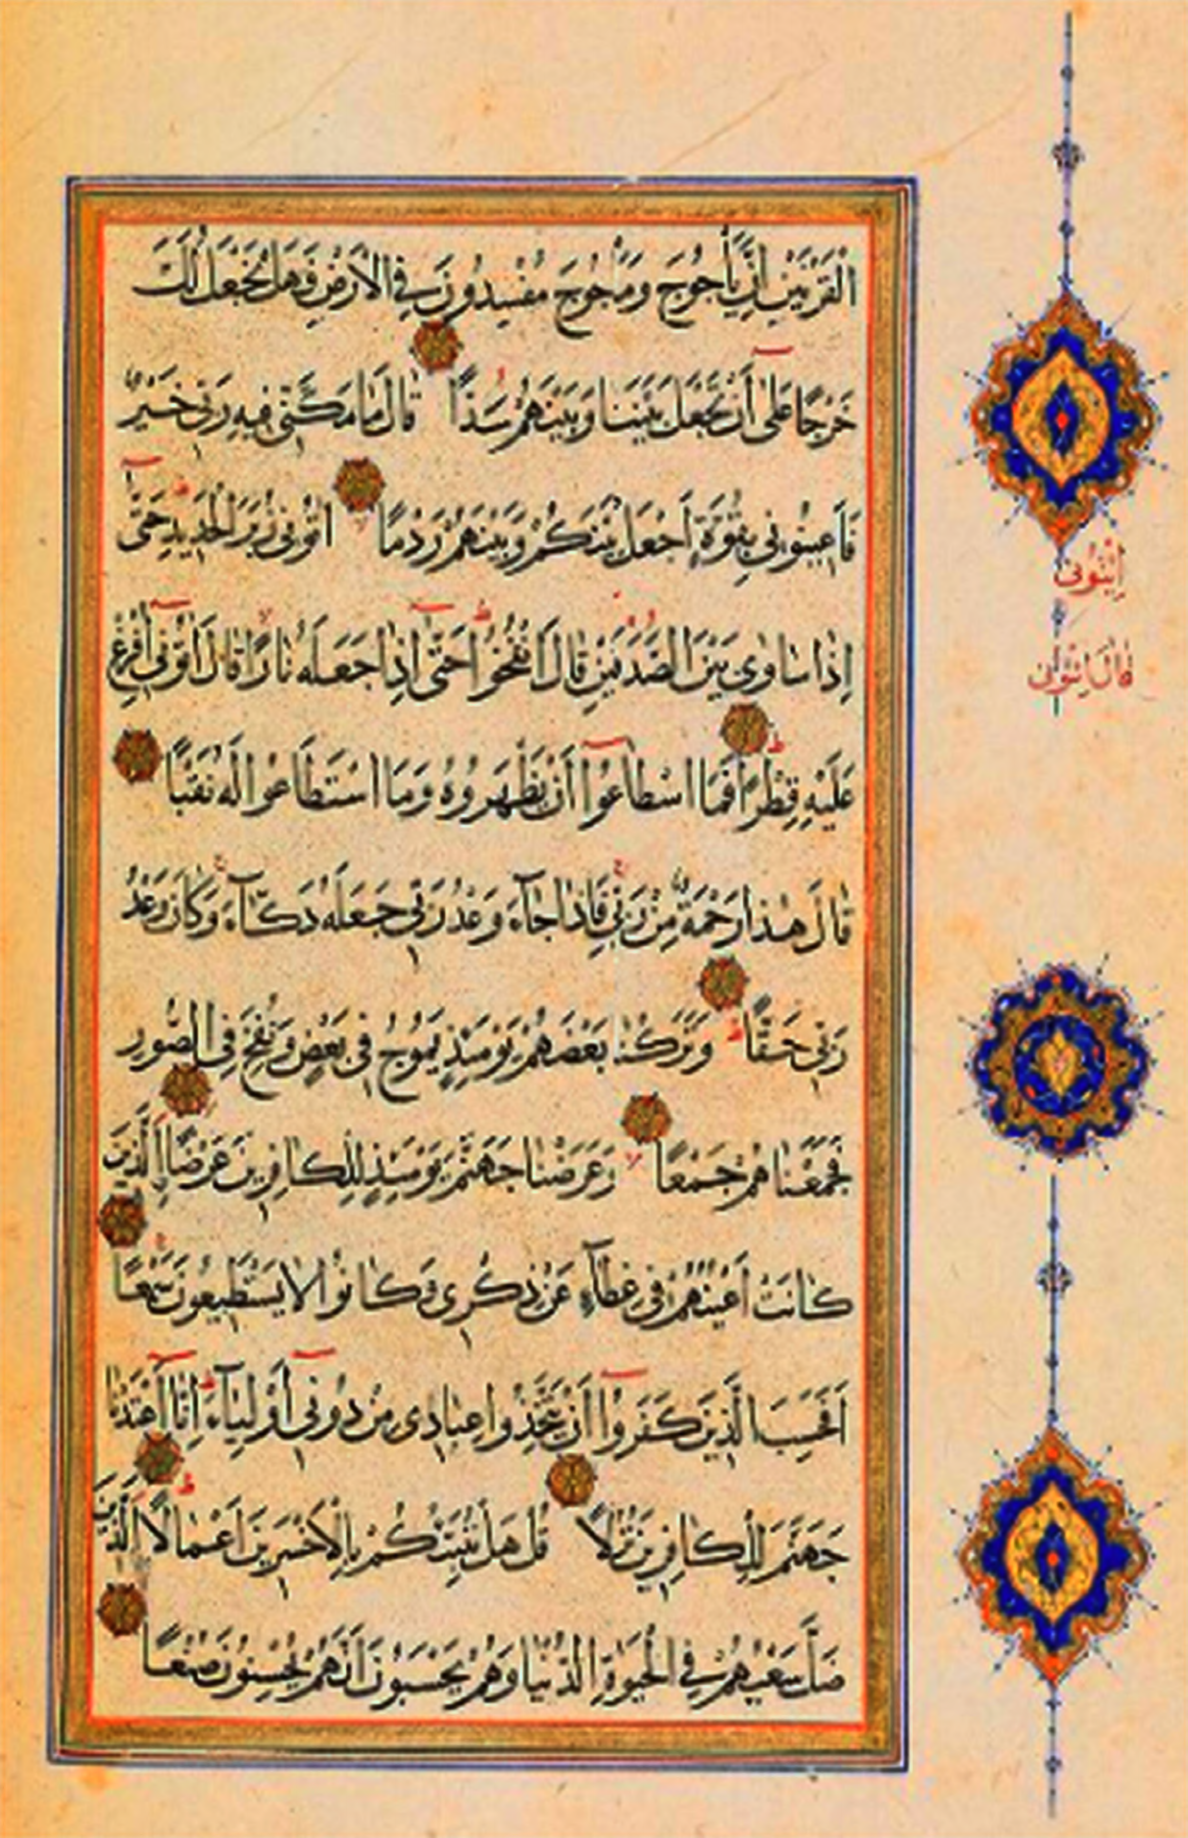 الْقَرْنَيْنِ اِنَّ يَأْجُوجَ وَمَأْجُوجَ مُفْسِدُونَ فِي الْاَرْضِ فَهَلْ نَجْعَلُ لَكَ
خَرْجًا عَلٰٓى اَنْ تَجْعَلَ بَيْنَنَا وَبَيْنَهُمْ سَدًّا قَالَ مَا مَكَّنّٖى فٖيهِ رَبّٖى خَيْرٌ
فَاَعٖينُونٖى بِقُوَّةٍ اَجْعَلْ بَيْنَكُمْ وَبَيْنَهُمْ رَدْمًا اٰتُونٖى زُبَرَ الْحَدٖيدِ حَتّٰٓى
اِذَا سَاوٰى بَيْنَ الصَّدَفَيْنِ قَالَ انْفُخُوا حَتّٰٓى اِذَا جَعَلَهُ نَارًا قَالَ اٰتُونٖٓى اُفْرِغْ
عَلَيْهِ قِطْرًا فَمَا اسْطَاعُوٓا اَنْ يَظْهَرُوهُ وَمَا اسْتَطَاعُوا لَهُ نَقْبًا
قَالَ هٰذَا رَحْمَةٌ مِنْ رَبّٖى فَاِذَا جَآءَ وَعْدُ رَبّٖى جَعَلَهُ دَكَّآءَ وَكَانَ وَعْدُ
رَبّٖى حَقًّا وَتَرَكْنَا بَعْضَهُمْ يَوْمَئِذٍ يَمُوجُ فٖى بَعْضٍ وَنُفِخَ فِى الصُّورِ
فَجَمَعْنَاهُمْ جَمْعًا وَعَرَضْنَا جَهَنَّمَ يَوْمَئِذٍ لِلْكَافِرٖينَ عَرْضًا اَلَّذٖينَ
كَانَتْ اَعْيُنُهُمْ فٖى غِطَآءٍ عَنْ ذِكْرٖى وَكَانُوا لَا يَسْتَطٖيعُونَ سَمْعًا
اَفَحَسِبَ الَّذٖينَ كَفَرُوٓا اَنْ يَتَّخِذُوا عِبَادٖى مِنْ دُونٖٓى اَوْلِيَآءَ اِنَّٓا اَعْتَدْنَا
جَهَنَّمَ لِلْكَافِرٖينَ نُزُلًا قُلْ هَلْ نُنَبِّئُكُمْ بِالْاَخْسَرٖينَ اَعْمَالًا اَلَّذٖينَ
ضَلَّ سَعْيُهُمْ فِي الْحَيٰوةِ الدُّنْيَا وَهُمْ يَحْسَبُونَ اَنَّهُمْ يُحْسِنُونَ صُنْعًا
اِئْتُونٖى
قَالَ ائْتُونٖى